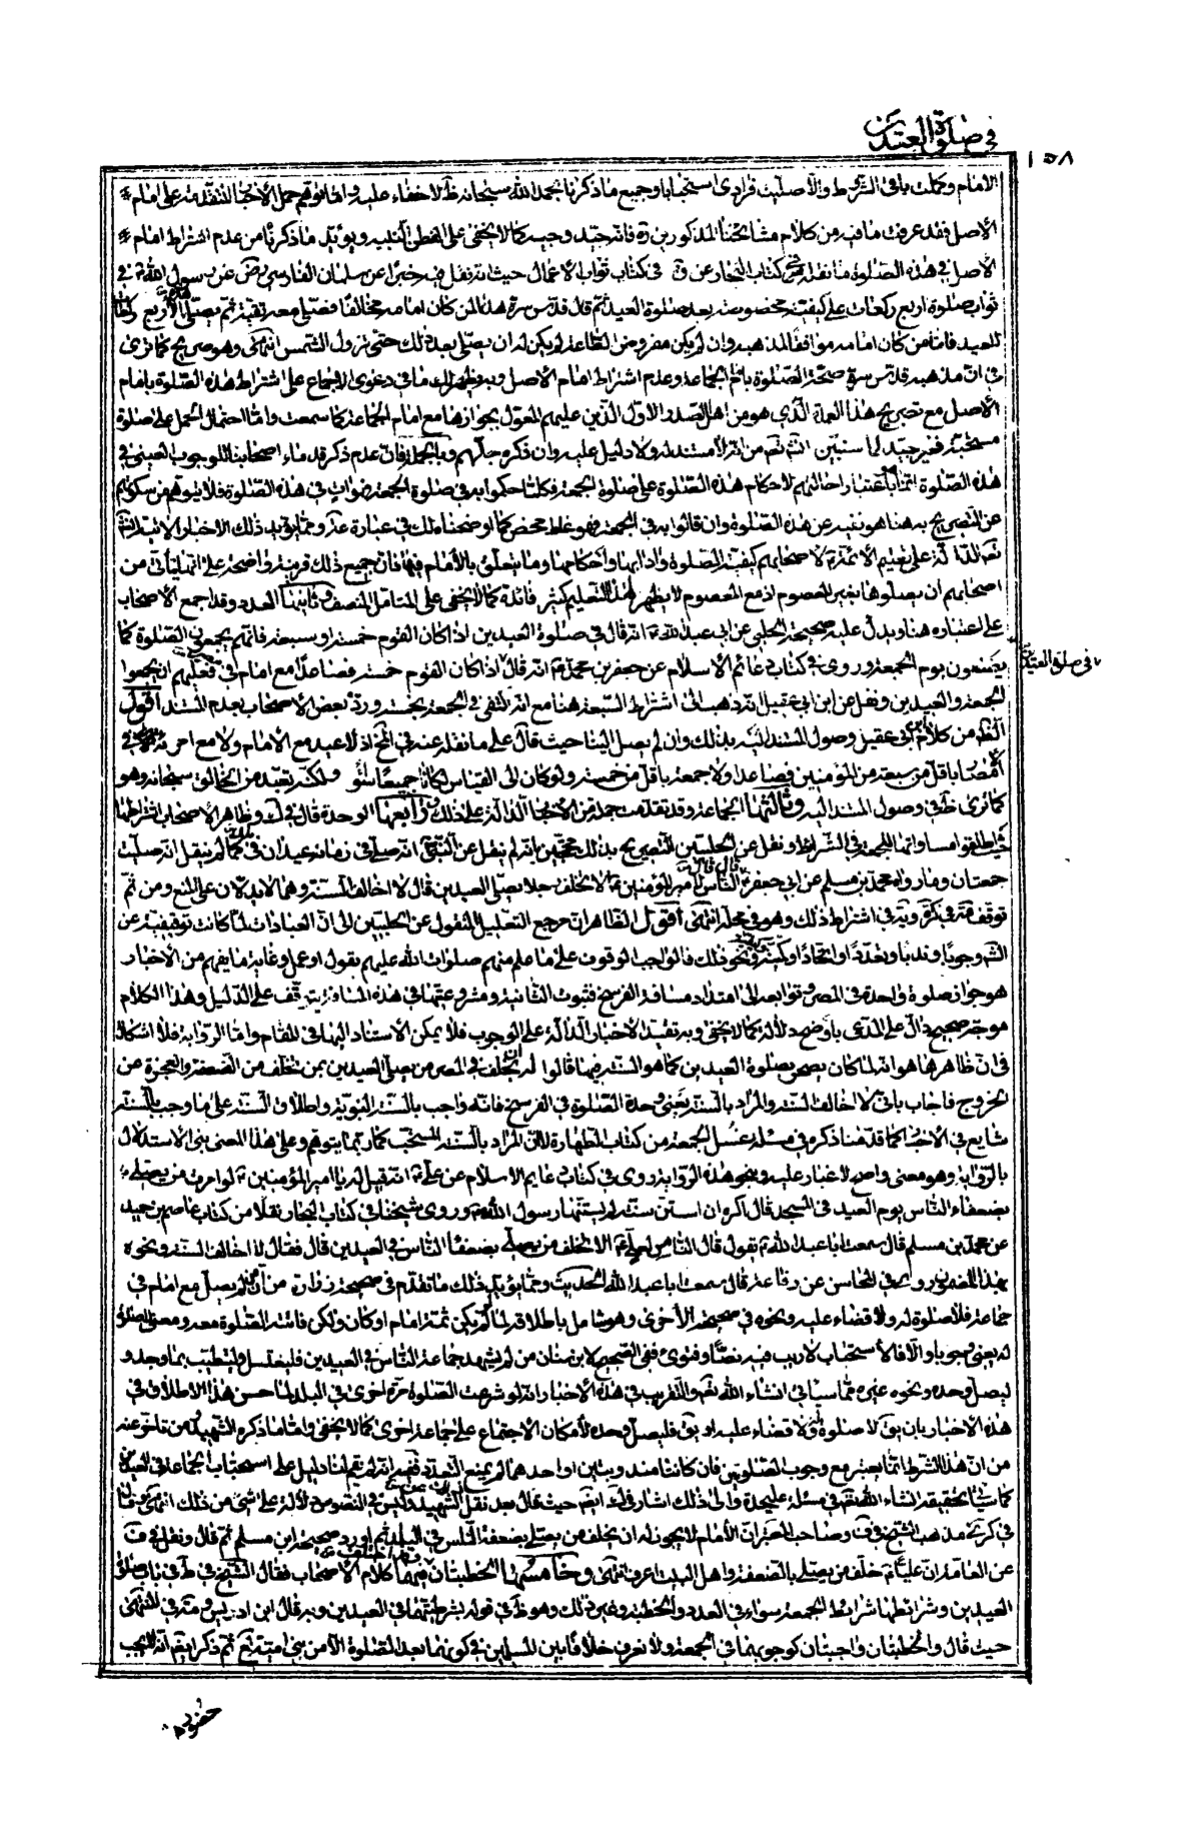 في صلوة العيدين
١٥٨
الامام وكملت باقي الشروط والأصليت فرادى استحبابا وجميع ما ذكرنا بحمد الله سبحانه ظ لاخفاء عليه واما توهم حمل الأخبار المتقدمة على امام
الأصل فقد عرفت ما فيه من كلام مشايخنا المذكورين ره فانه جيد وجيه كما لا يخفى على الفطن النبيه ويؤيد ما ذكرنا من عدم اشتراط امام
الأصل في هذه الصلوة ما نقله في كتاب البحار عن ق في كتاب ثواب الأعمال حيث انه نقل فيه خبرا عن سلمان الفارسي رض عن رسول الله ص في
ثواب صلوة اربع ركعات على كيفية مخصوصة بعد صلوة العيد ثم قال قدس سره هذا لمن كان امامه مخالفا فصلى معه تقية ثم يصلي هذه الأربع ركعات
للعيد فاما من كان امامه موافقا لمذهبه وان لم يكن مفروض الطاعة لم يكن له ان يصلي بعد ذلك حتى تزول الشمس انتهى وهو صريح كما ترى
في ان مذهبه قدس سره صحة الصلوة بامام الجماعة وعدم اشتراط امام الاصل وبه يظهر لك ما في دعوى الاجماع على اشتراط هذه الصلوة بامام
الأصل مع تصريح هذا العمدة الذي هو من اهل الصدر الاول الذين عليهم المعول بجوازها مع امام الجماعة كما سمعت واما احتمال الحمل على صلوة
مستحبة فغير جيد لما سنبين انشاء الله تعالى من انه لا مستند له ولا دليل عليه وان ذكره جلهم وبالجملة فان عدم ذكر قدماء اصحابنا للوجوب العيني في
هذه الصلوة انما هو باعتبار احالتهم لاحكام هذه الصلوة على صلوة الجمعة فكلما حكموا به في صلوة الجمعة فهو ات في هذه الصلوة فلا يتوهم من سكوتهم
عن التصريح به هنا هو نفيه عن هذه الصلوة وان قالوا به في الجمعة فهو غلط محض كما اوضحناه لك في عبارة ومما يؤيد ذلك الاخبار الاتية انشاء الله
تعالى الدالة على تعليم الائمة ع لاصحابهم كيفية الصلوة وادابها واحكامها وما يتعلق بالأمام فيها فان جميع ذلك قرينة واضحة على انه لم يتأتى من
اصحابهم ان يصلوها بغير المعصوم اذ مع المعصوم لا يظهر لهذا التعليم كثير فائدة كما لا يخفى على المتامل المنصف وثانيها العدد وقد اجمع الاصحاب
على اعتباره هنا ويدل عليه صحيحة الحلبي عن ابي عبد الله ع انه قال في صلوة العيدين اذا كان القوم خمسة او سبعة فانهم يجمعون الصلوة كما
يصنعون يوم الجمعة وروى في كتاب دعائم الأسلام عن جعفر بن محمد ع انه قال اذا كان القوم خمسة فصاعدا مع امام في مصر فعليهم ان يجمعوا
في صلوة العيدين
للجمعة والعيدين ونقل عن ابن ابي عقيل انه ذهب الى اشتراط السبعة هنا مع انه اكتفى في الجمعة بخمسة ورده بعض الأصحاب بعدم المستند اقول
الظ من كلام ابن ابي عقيل وصول المستند اليه بذلك وان لم يصل الينا حيث قال على ما نقله عنه في لف ولا عيد مع الامام ولا مع امرائه في
الأمصار باقل من سبعة من المؤمنين فصاعدا ولا جمعة باقل من خمسة ولو كان الى القياس لكانا جميعا سواء ولكنه تعبد من الخالق سبحانه وهو
كما ترى ظ في وصول المستند اليه وثالثها الجماعة وقد تقدمت جملة من الاخبار الدالة على ذلك ورابعها الوحدة قال في ك وظاهر الأصحاب اشتراطها
حيث اطلقوا مساواتها للجمعة في الشرائط ونقل عن الحلبيين التصريح بذلك محتجين بانه لم ينقل عن النبي ص انه صلى في زمانه عيدان في بلد كما لم ينقل انه صليت
جمعتان وما رواه محمد بن مسلم عن ابي جعفر ع قال قال الناس لأمير المؤمنين ع الا تخلف رجلا يصلي العيدين قال لا اخالف السنة وهما لا يدلان على المنع ومن ثم
توقف مة في كرة وية في اشتراط ذلك وهو في محله انتهى اقول الظاهر ان مرجع التعليل المنقول عن الحلبيين الى ان العبادات لما كانت توقيفية عن
الشارع وجوبا وندبا وتعددا او اتحادا او كيفية ونحو ذلك فالواجب الوقوف على ما علم منهم صلوات الله عليهم بقول او عمل وغاية ما يفهم من الأخبار
هو جواز صلوة واحدة في المصر وتوابعه الى امتداد مسافة الفرسخ فثبوت الثانية ومشروعيتها في هذه المسافة يتوقف على الدليل وهذا الكلام
موجه صحيح دال على المدعى باوضح دلالة كما لا يخفى وبه تقيد الأخبار الدالة على الوجوب فلا يمكن الاستناد اليها في المقام واما الرواية فلا اشكال
في ان ظاهرها هو انه لما كان ع يصحر بصلوة العيدين كما هو السنة فيها قالوا له ان يخلف في المصر من يصلي العيدين بمن تخلف من الضعفة والعجزة عن
الخروج فاجاب باني لا اخالف السنة والمراد بالسنة يعني وحدة الصلوة في الفرسخ فانه واجب بالسنة النبوية واطلاق السنة على ما وجب بالسنة
شايع في الأخبار كما قدمنا ذكره في مسئلة غسل الجمعة من كتاب الطهارة لا ان المراد بالسنة المستحب كما ربما يتوهم وعلى هذا المعنى بنى الاستدلال
بالرواية وهو معنى واضح لا غبار عليه ونحو هذه الرواية روى في كتاب دعايم الاسلام عن علي ع انه قيل له يا امير المؤمنين ع لو امرت من يصلي
بضعفاء الناس يوم العيد في المسجد قال اكره ان استن سنة لم يستنها رسول الله ص وروى شيخنا في كتاب البحار نقلا من كتاب عاصم بن حميد
عن محمد بن مسلم قال سمعت ابا عبد الله ع يقول قال الناس لعلي ع الا تخلف من يصلي بضعفاء الناس في العيدين قال فقال لا اخالف السنة ونحوه
بهذا المضمون روى في المحاسن عن رفاعة قال سمعت ابا عبد الله الحديث ومما يؤيد ذلك ما تقدم في صحيحة زرارة من ان من لم يصل مع امام في
جماعة فلا صلوة له ولا قضاء عليه ونحوه في صحيحته الأخرى وهو شامل باطلاقه لما لم يكن ثمة امام او كان ولكن فاتته الصلوة معه ومعنى لا صلوة
له يعني وجوبا والا فالأستحباب لا ريب فيه نصا وفتوى ففي الصحيح لابن سنان من لم يشهد جماعة الناس في العيدين فليغتسل وليتطيب بما وجد و
ليصل وحده ونحوه غيره مما سياتي انشاء الله تعالى والتقريب في هذه الأخبار انه لو شرعت الصلوة مرة اخرى في البلد لما حسن هذا الاطلاق في
هذه الاخبار بان يق لا صلوة له ولا قضاء عليه او يق فليصل وحده لأمكان الاجتماع على جماعة اخرى كما لا يخفى واما ما ذكره الشهيد ومن تاخر عنه
من ان هذا الشرط انما يعتبر مع وجوب الصلوتين فان كانتا مندوبتين او احدهما لم يمنع التعدد ففيه انه لم يقم لنا دليل على استحباب الجماعة في العيد
كما سياتي تحقيقه انشاء الله تعالى في مسئلة عليحدة والى ذلك اشار في ك ايضا حيث قال بعد نقل ذلك عن الشهيد وليس في النصوص دلالة على شئ من ذلك انتهى
في كرة مذهب الشيخ في ف وصاحب المعتبر ان الأمام لا يجوز له ان يخلف من يصلي بضعفة الناس في البلد ثم اورد صحيحة ابن مسلم ثم قال ونقل في ف
عن العامة ان عليا ع خلف من يصلي بالضعفة واهل البيت اعرف انتهى وخامسها الخطبتان وقد اختلف فيها كلام الأصحاب فقال الشيخ في ط في باب صلوة
العيدين وشرائطها شرائط الجمعة سواء في العدد والخطبة وغير ذلك وهو ظ في قوله بشرطيتها في العيدين وبه قال ابن ادريس ومة في المنتهى
حيث قال والخطبتان واجبتان كوجوبهما في الجمعة ولا نعرف خلافا بين المسلمين في كونهما بعد الصلوة الا من بني امية ثم ذكر ايضا انه لا يجب
حضور